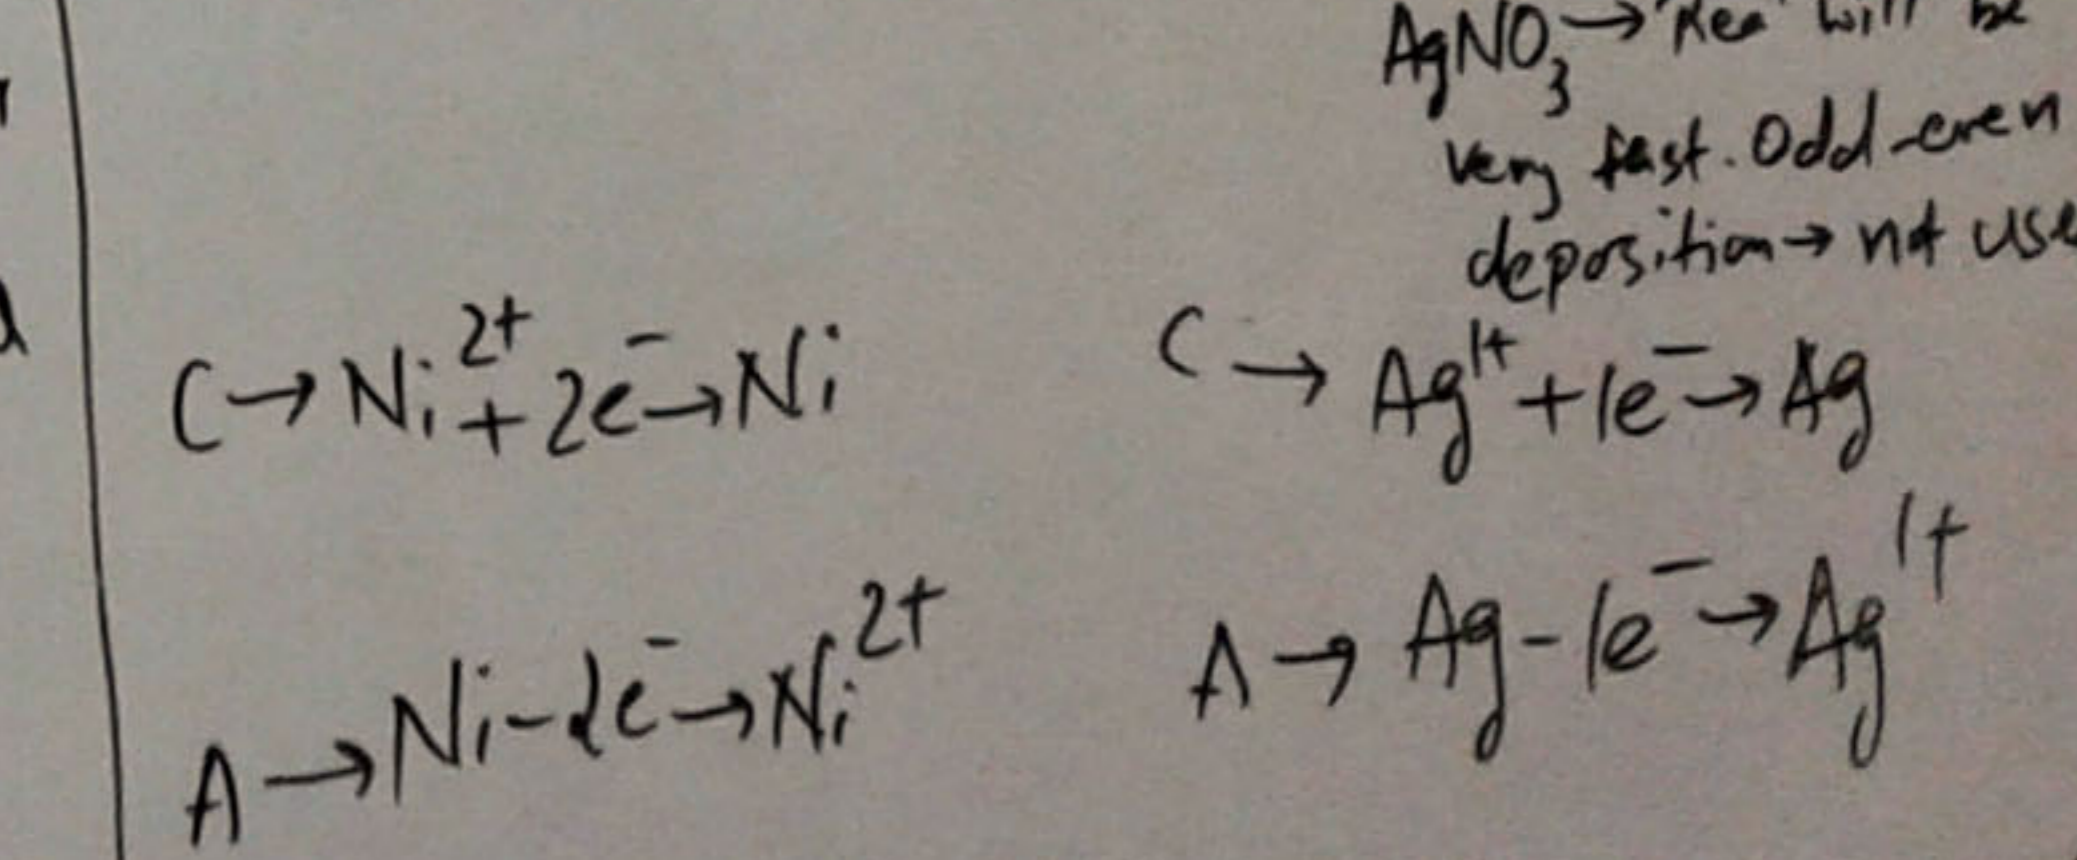 AgNO₃ → Rea will be
very fast. Odd-even
deposition → not use
C → Ni²⁺ + 2e⁻ → Ni
C → Ag¹⁺ + 1e⁻ → Ag
A → Ni - 2e⁻ → Ni²⁺
A → Ag - 1e⁻ → Ag¹⁺